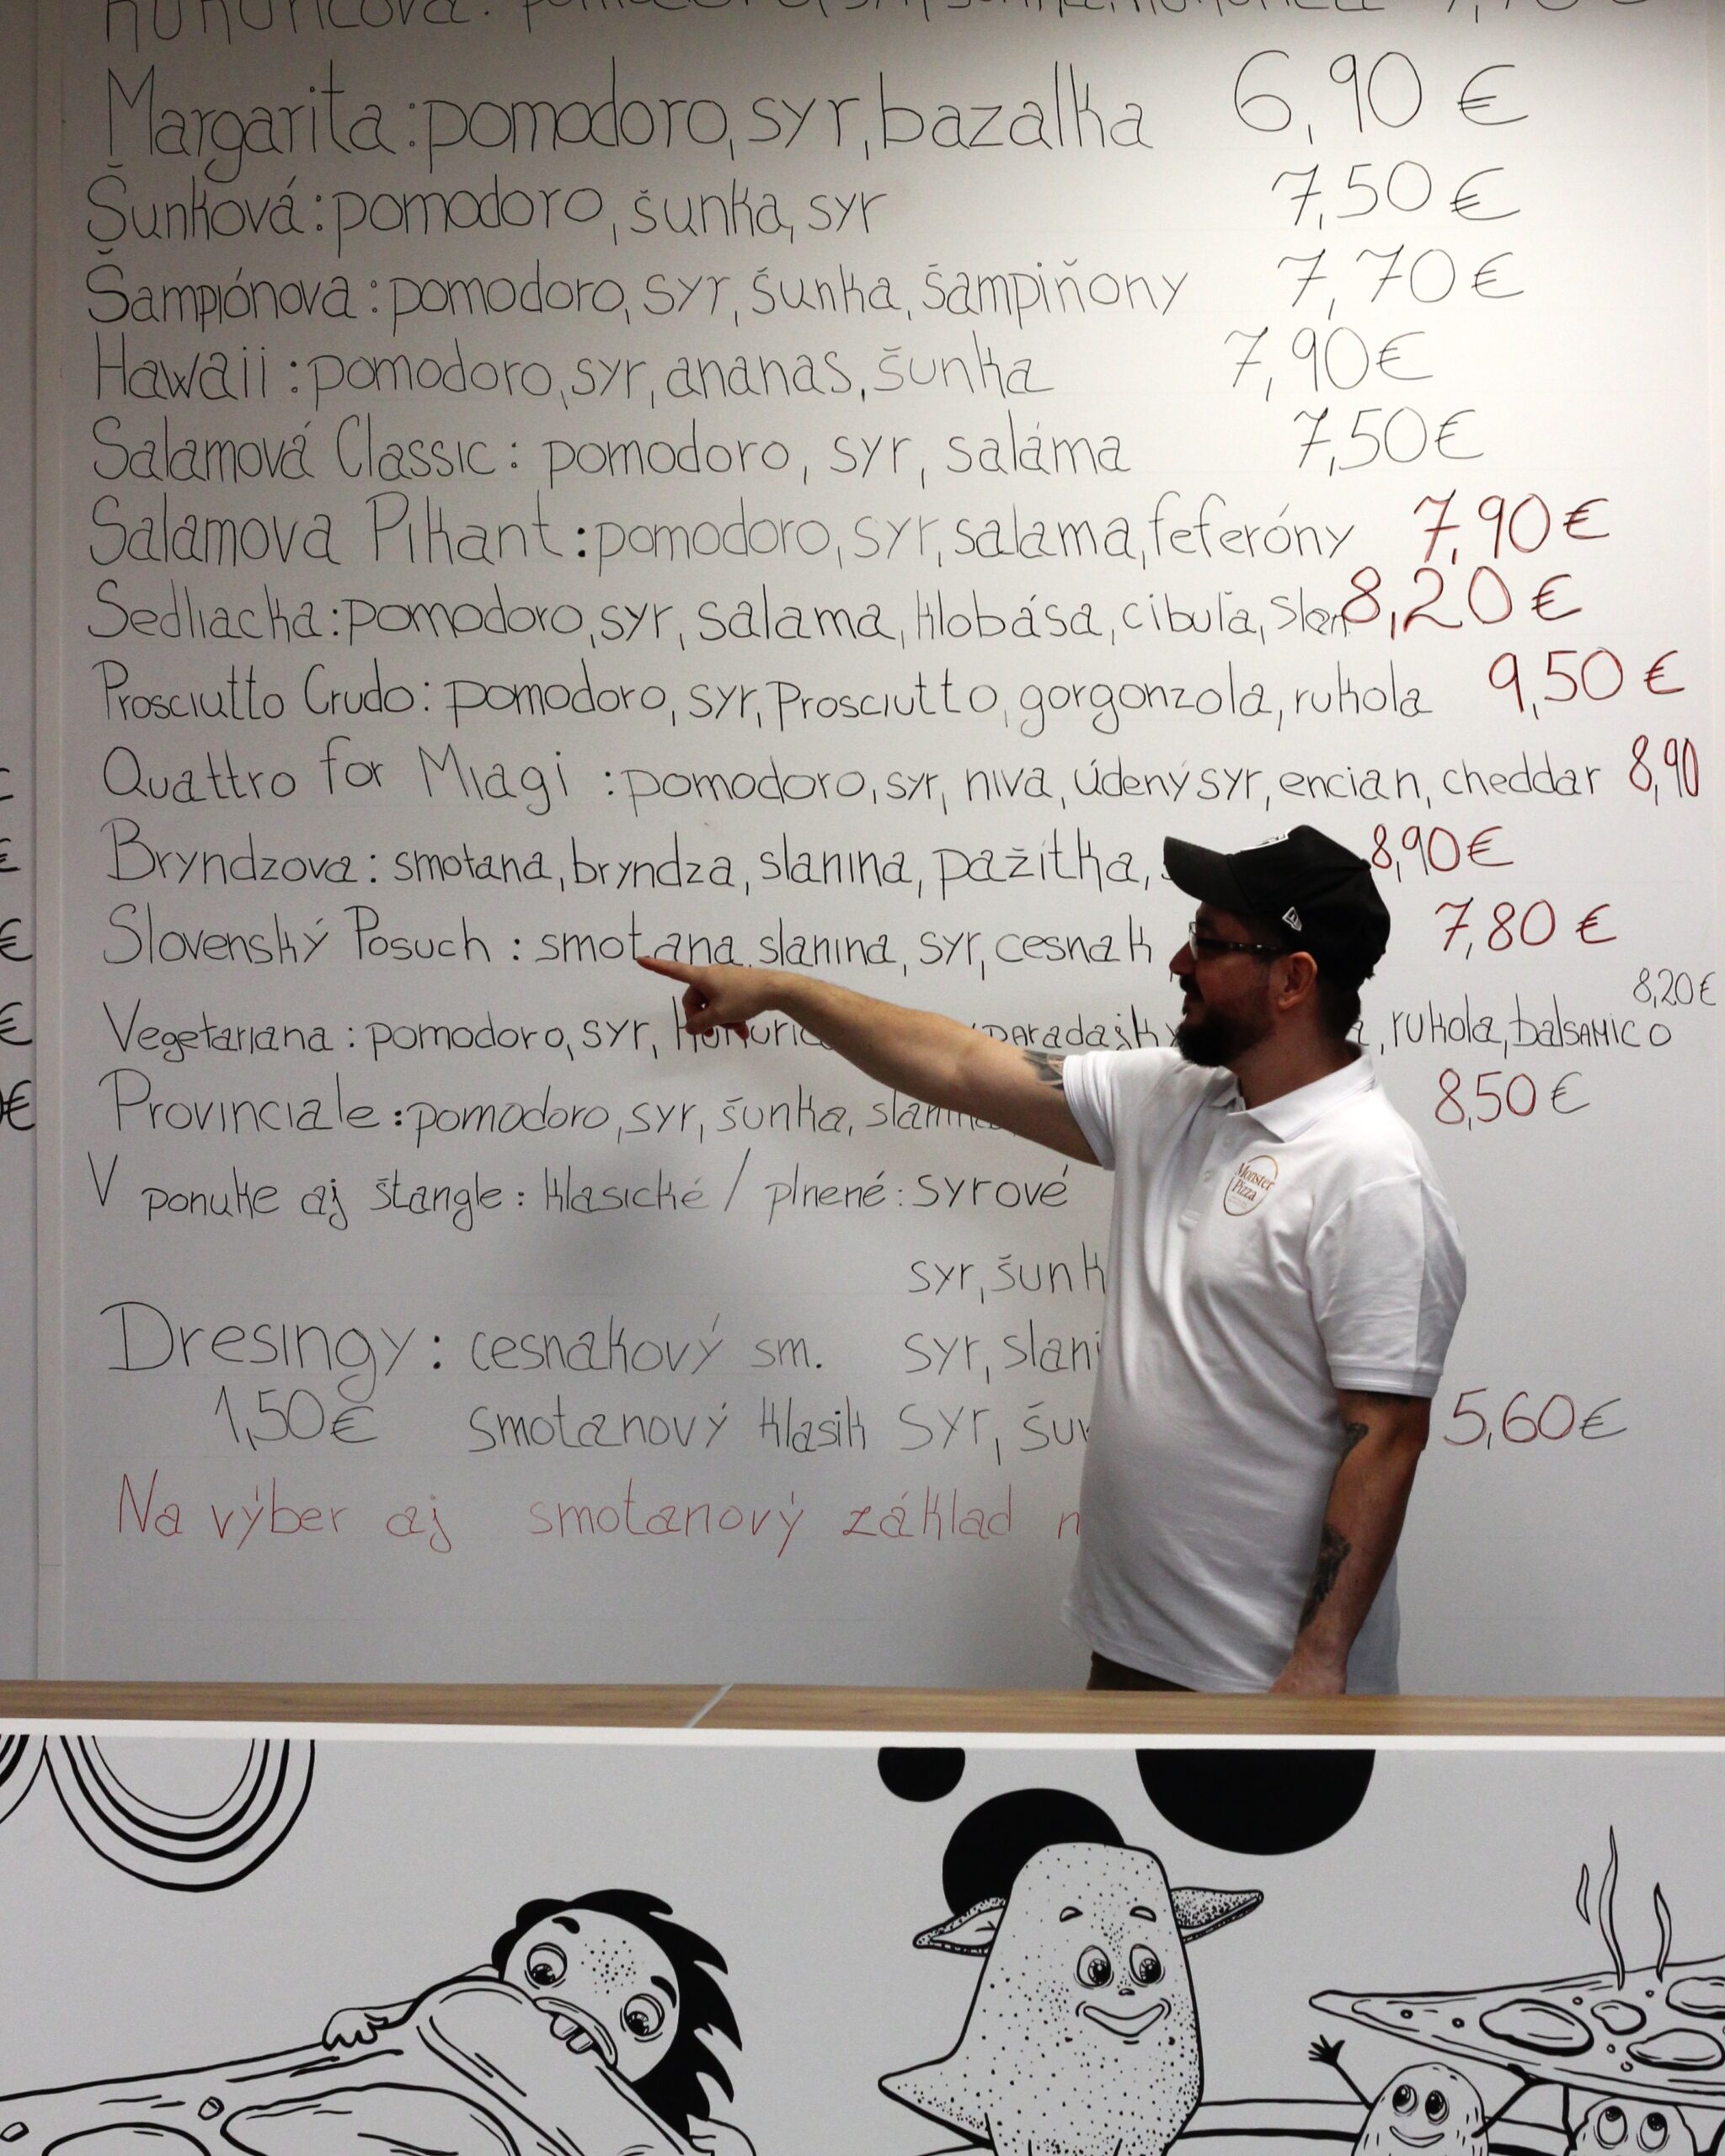 Margarita: pomodoro, syr, bazalka 6,90 €
Šunková: pomodoro, šunka, syr 7,50 €
Šampiónová: pomodoro, syr, šunka, šampiňony 7,70 €
Hawaii: pomodoro, syr, ananas, šunka 7,90 €
Salamová Classic: pomodoro, syr, saláma 7,50 €
Salamova Pikant: pomodoro, syr, salama, feferóny 7,90 €
Sedliacka: pomodoro, syr, salama, klobása, cibuľa, 8,20 €
Prosciutto Crudo: pomodoro, syr, Prosciutto, gorgonzola, rukola 9,50 €
Quattro for Miagi: pomodoro, syr, niva, údený syr, encian, cheddar 8,90
Bryndzova: smotana, bryndza, slanina, pažitka, 8,90 €
Slovenský Posuch: smotana, slanina, syr, cesnak 7,80 €
8,20 €
Vegetariana: pomodoro, syr, rukola, balsamico
Provinciale: pomodoro, syr, šunka, 8,50 €
V ponuke aj štangle: klasické / plnené: syrové
syr,
Dresingy: cesnakový sm. syr,
1,50 € smotanový klasik syr, 5,60 €
Na výber aj smotanový základ
Monster
Pizza